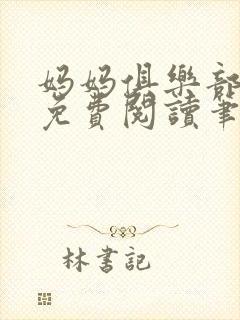 媽媽俱樂部
免費閱讀筆
林書記